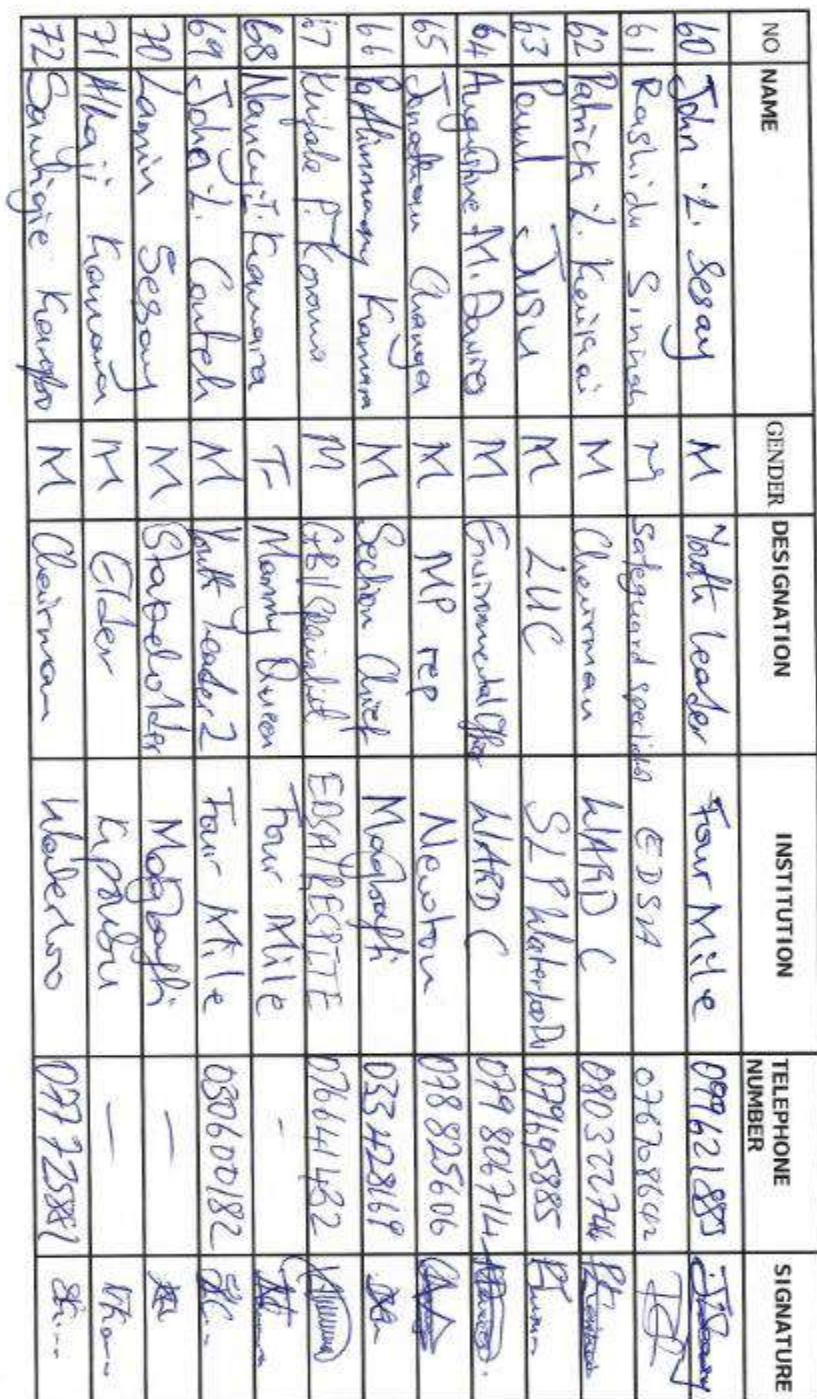 NO NAME GENDER DESIGNATION INSTITUTION TELEPHONE NUMBER SIGNATURE
60 John .L. Sesay M Youth leader Four Mile
61 Rashidu Sinnah M Safeguard specialist EDSA 076708602
62 Patrick L. Kaikai M Chairman WARD C
63 Paul JUSU M LUC SLP Waterloo 079695885
64 Augustine M. Davies M Environmental Officer WARD C 079 806714
65 Jonathan M MP rep Newton 078 825606
66 Kamara M Section Chief Magbafti 033 428169
67 P. Koroma M EDSA/RESPITE 076641432
68 Nancy T. Kamara F Mammy Queen Four Mile -
69 John L. Conteh M Youth leader 2 Four Mile 030600182
70 Lamin Sesay M Stakeholder Magbafti —
71 Alhaji Kamara M Elder —
72 Santigie Kargbo M Chairman Waterloo